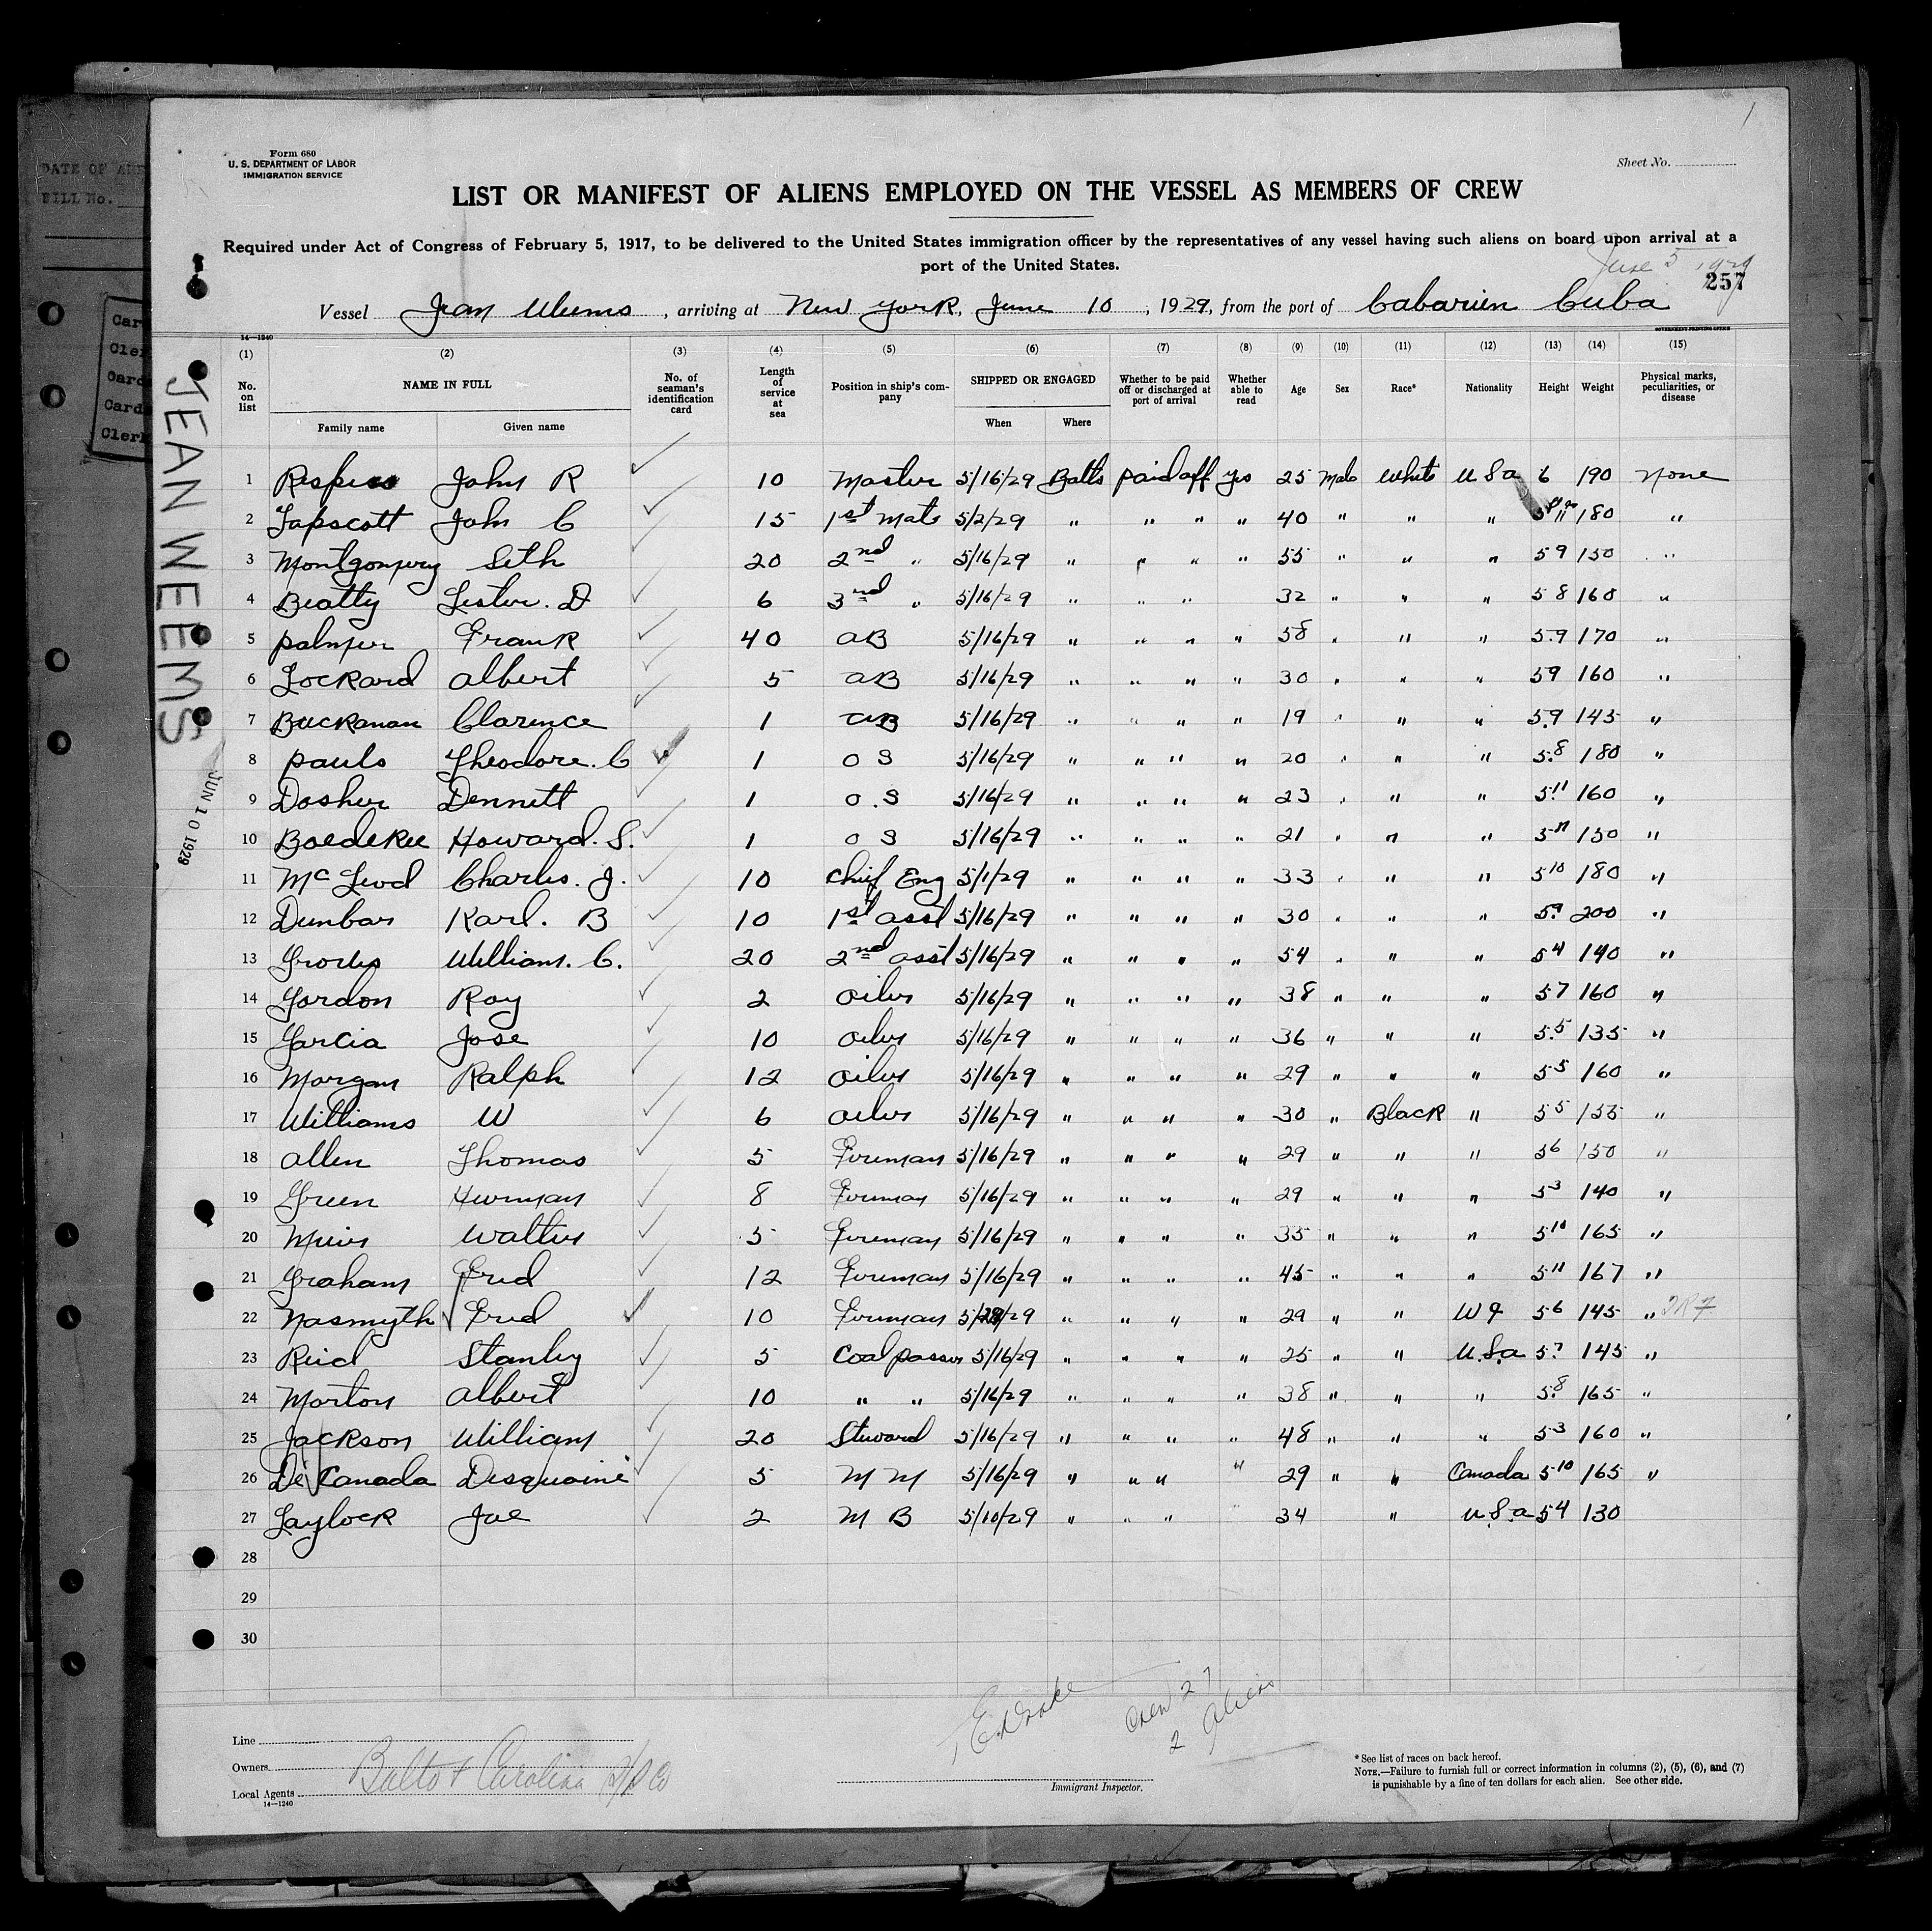 DATE OF
BILL No.
Form 680
U. S. DEPARTMENT OF LABOR
IMMIGRATION SERVICE
1
Sheet No.
LIST OR MANIFEST OF ALIENS EMPLOYED ON THE VESSEL AS MEMBERS OF CREW
Required under Act of Congress of February 5, 1917, to be delivered to the United States immigration officer by the representatives of any vessel having such aliens on board upon arrival at a
port of the United States.
June 5 1929
257
Vessel Jean Weems, arriving at New York, June 10, 1929, from the port of Cabarien Cuba
14—1240
GOVERNMENT PRINTING OFFICE
(1) (2) (3) (4) (5) (6) (7) (8) (9) (10) (11) (12) (13) (14) (15)
No. on list NAME IN FULL No. of seaman's identification card Length of service at sea Position in ship's company SHIPPED OR ENGAGED Whether to be paid off or discharged at port of arrival Whether able to read Age Sex Race* Nationality Height Weight Physical marks, peculiarities, or disease
Family name Given name When Where
1 Respess John R 10 Master 5/16/29 Balto paid off yes 25 Male White U S a 6 190 None
2 Tapscott John C 15 1st Mate 5/2/29 " " " " 40 " " " 180 "
3 Montgomery Seth 20 2nd " 5/16/29 " " " " 55 " " " 5 9 150 "
4 Beatty Lester. D 6 3nd " 5/16/29 " " " 32 " " " 5 8 160 "
5 palmer Frank 40 aB 5/16/29 " " " " 58 " " " 5.9 170 "
6 Lockard albert 5 aB 5/16/29 " " " " 30 " " " 59 160 "
7 Buckanan Clarence 1 aB 5/16/29 " " " " 19 " " " 5.9 145 "
8 pauls Theodore. C 1 O S 5/16/29 " " " " 20 " " " 5.8 180 "
9 Dosher Dennett 1 O.S 5/16/29 " " " " 23 " " " 5.11 160 "
10 Boedeker Howard. S. 1 O S 5/16/29 " " " " 21 " " " 5 11 150 "
11 Mc Leod Charles. J. 10 Chief Eng 5/1/29 " " " " 33 " " " 5 10 180 "
12 Dunbar Karl. B 10 1st asst 5/16/29 " " " " 30 " " " 5.9 200 "
13 Groves William. C. 20 2nd asst 5/16/29 " " " " 54 " " " 5 4 140 "
14 Gordon Roy 2 oiler 5/16/29 " " " " 38 " " " 5 7 160 "
15 Garcia Jose 10 oiler 5/16/29 " " " " 36 " " " 5.5 135 "
16 Morgan Ralph 12 oiler 5/16/29 " " " " 29 " " " 5 5 160 "
17 Williams W 6 oiler 5/16/29 " " " " 30 " Black " 5 5 155 "
18 allen Thomas 5 Fireman 5/16/29 " " " " 29 " " " 5 6 150 "
19 Green Herman 8 Fireman 5/16/29 " " " " 29 " " " 5 3 140 "
20 Mier Walter 5 Fireman 5/16/29 " " " " 35 " " " 5 10 165 "
21 Graham Fred 12 Fireman 5/16/29 " " " " 45 " " " 5 11 167 "
22 Nasmyth Fred 10 Fireman 5/29/29 " " " " 29 " " W I 5 6 145 "
23 Reid Stanley 5 Coal passer 5/16/29 " " " " 25 " " U.S.a 5.7 145 "
24 Morton albert 10 " " 5/16/29 " " " " 38 " " " 5.8 165 "
25 Jackson William 20 Steward 5/16/29 " " " " 48 " " " 5 3 160 "
26 De Canada Desquaine 5 M M 5/16/29 " " " " 29 " " Canada 5 10 165 "
27 Laylock Joe 2 M B 5/10/29 " " " 34 " U.S.a 5 4 130
28
29
30
JEAN WEEMS
JUN 10 1929
E. Drake
Crew 27
2 Aliens
Line
Owners
Balto & Carolina S/S Co
Local Agents
14—1240
Immigrant Inspector.
*See list of races on back hereof.
NOTE.—Failure to furnish full or correct information in columns (2), (5), (6), and (7)
is punishable by a fine of ten dollars for each alien. See other side.